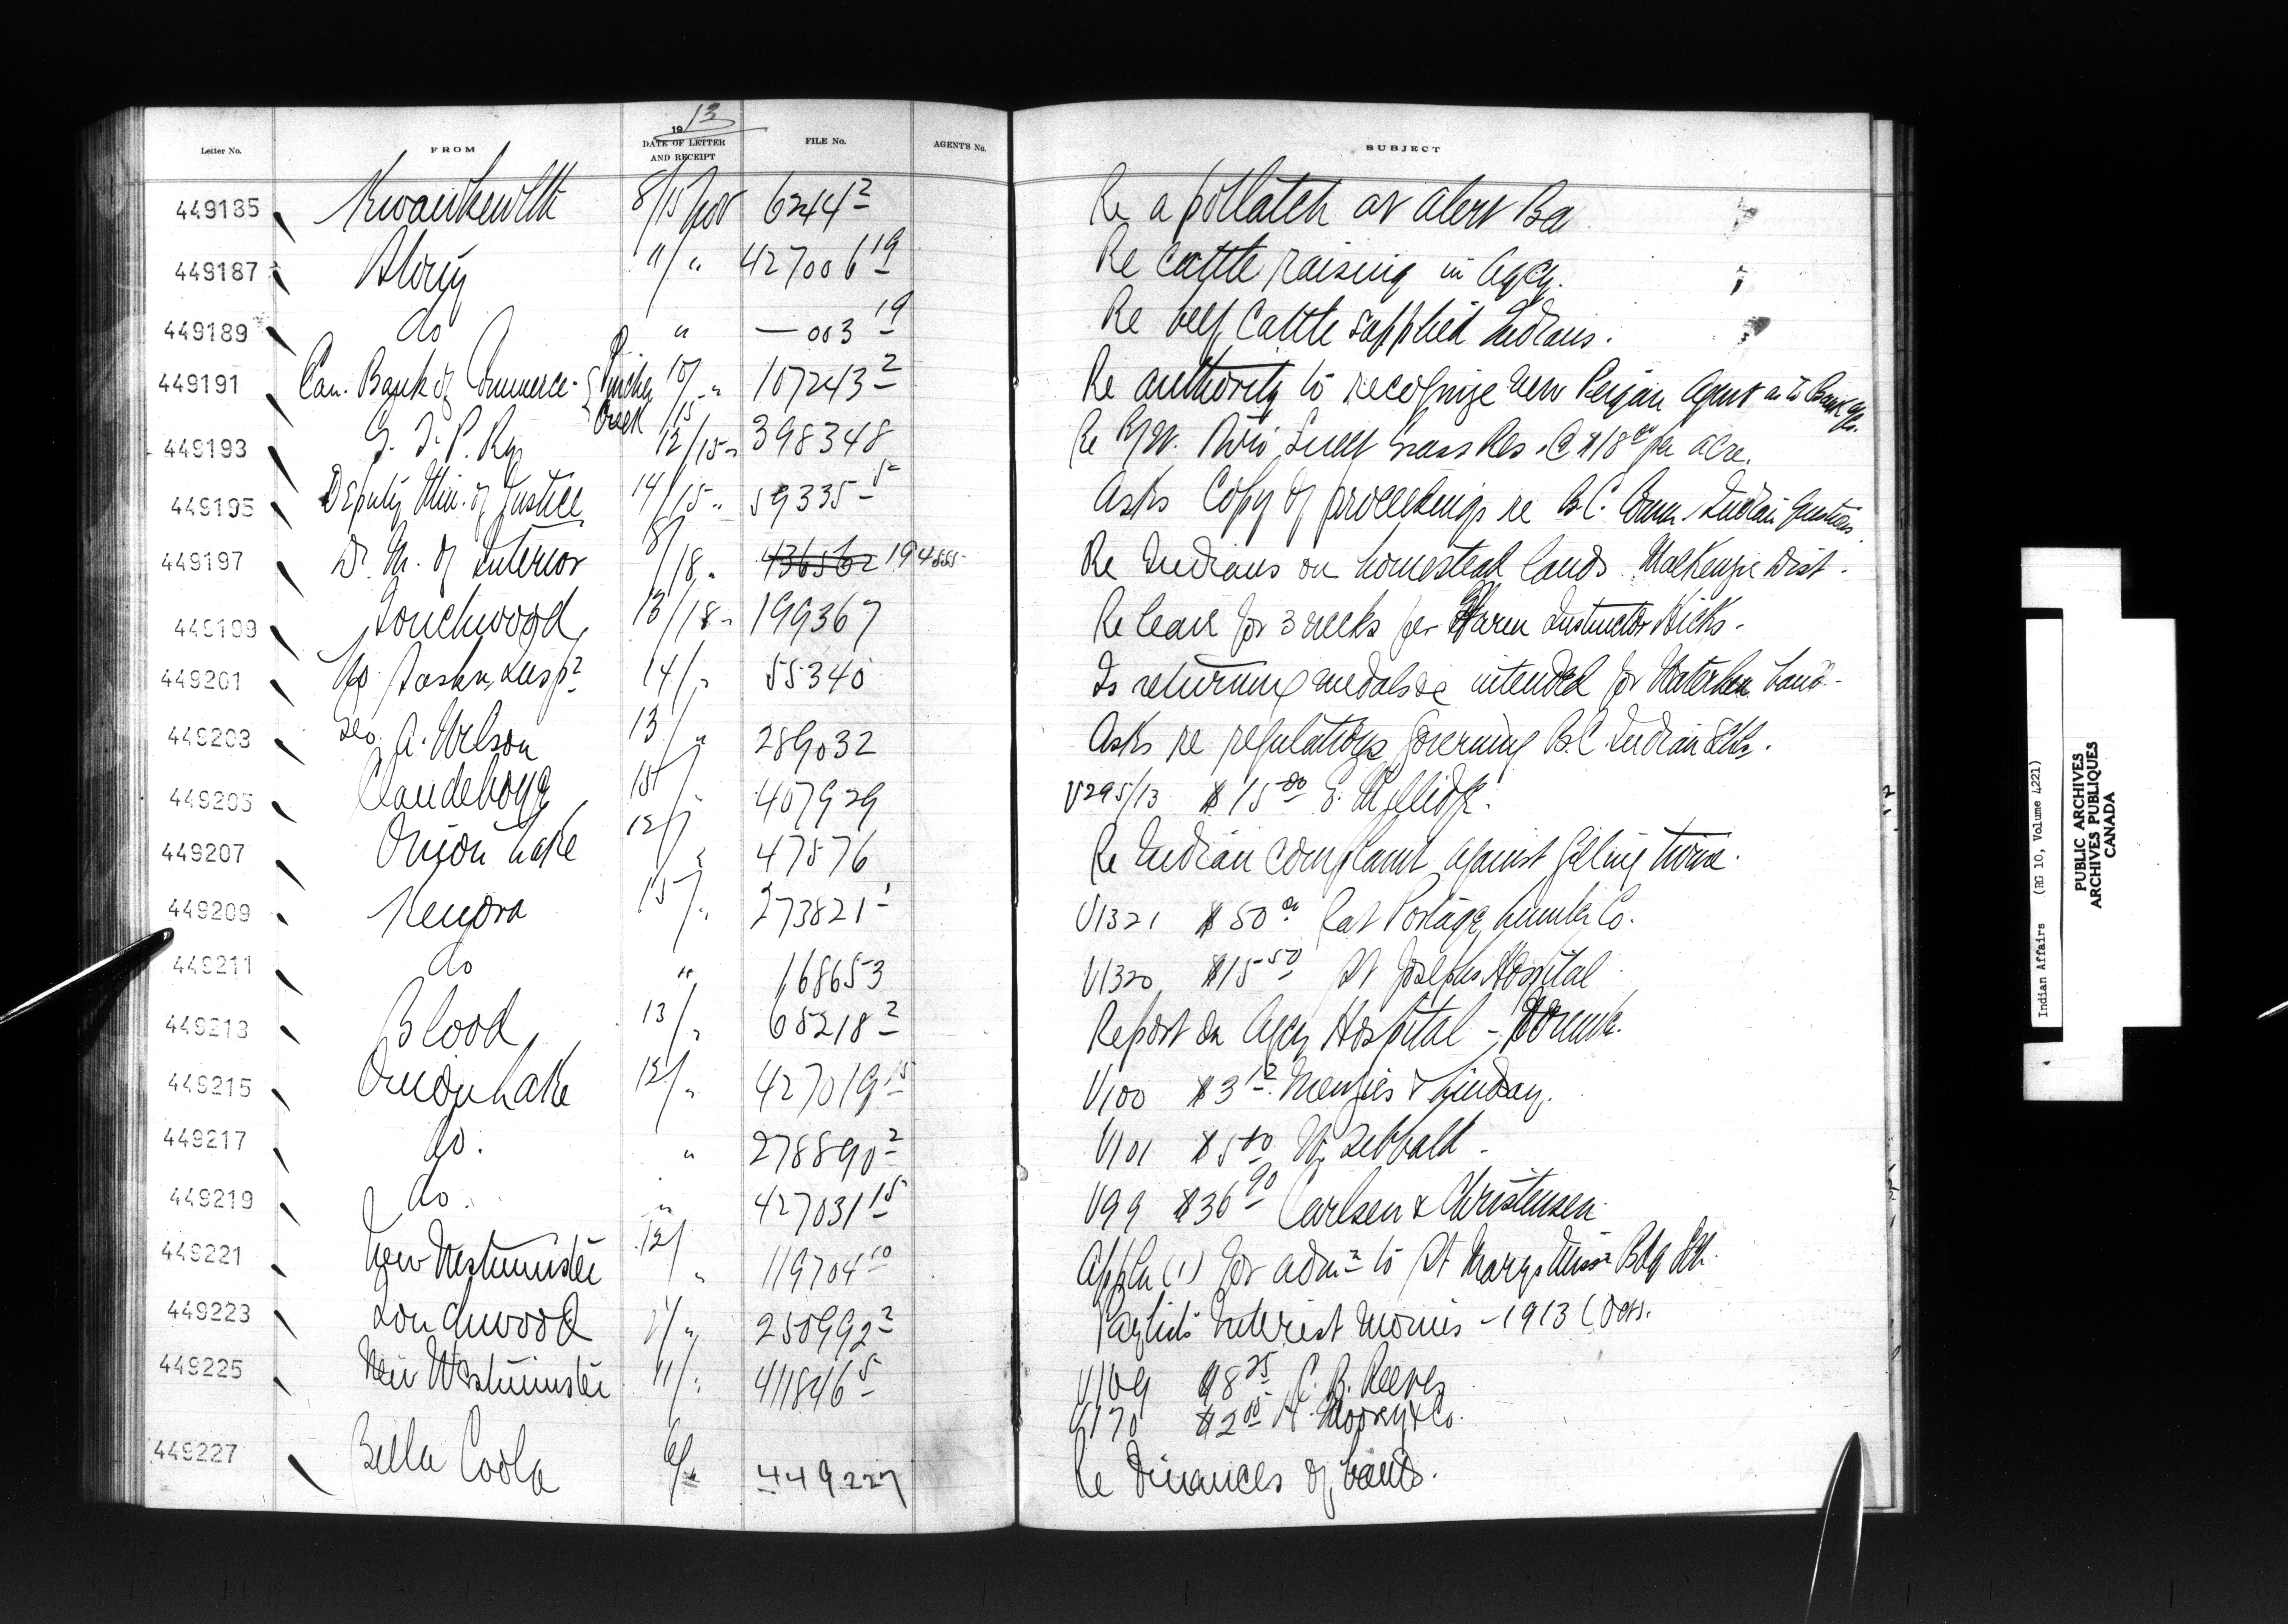 1913
Letter No. FROM DATE OF LETTER AND RECEIPT FILE No. AGENT'S No. SUBJECT
449185 Kwawkewlth 8/15 Nov 6244² Re a potlatch at Alert Ba
449187 Stony "/" 427006¹⁹ Re cattle raising in Agcy.
449189 do " — 003¹⁹ Re beef cattle supplied Indians.
449191 Can. Bank of Commerce - Pincher Creek 10/15 " 107243² Re authority to recognize new Peigan Agent as to Bank
449193 G. T. P. Ry 12/15 " 398348 Re R/W. Sweet Grass Res. @ $18⁰⁰ per acre.
449195 Deputy Min. of Justice 14/15 " 59335⁵ Asks copy of proceedings re B.C. Comm. Indian Questions
449197 D. M. of Interior 8/18 " 436562 194555 Re Indians on homestead lands MacKenzie Dist.
449199 Touchwood 13/18 " 199367 Re leave for 3 weeks for Farm Instructor Hicks -
449201 No. Sask. Insp. 14/" 55340 Is returning medals &c intended for Waterhen band -
449203 Geo. A. Wilson 13/" 289032 Asks re regulations governing B.C. Indian Schs.
449205 Clandeboye 15/" 407929 V295/13 $15⁰⁰ E.
449207 Onion Lake 12/" 47576 Re Indian complaint against gilling twine.
449209 Kenora 15/" 273821¹ V1321 $50⁰⁰ Rat Portage Lumber Co.
449211 do " 168653 V1320 $15⁵⁰ St Josephs Hospital
449213 Blood 13/" 65218² Report on Agcy Hospital -
449215 Onion Lake 12/" 427019¹⁵ V100 $3¹² Menzies & Lindsay.
449217 do. " 278890² V101 $5 W. Sibbald -
449219 do. " 427031¹⁵ V99 $36⁹⁰ Carlsen & Christensen
449221 New Westminster 12/" 119704¹⁰ Appln (1) for admn to St Marys Missn Bdg Sch.
449223 Touchwood " 250992² Paylists Interest Monies - 1913 (Oct).
449225 New Westminster 11/" 411846⁵ V169 $8²⁵ C. B. Reeves
V170 $2⁰⁰ & Co.
449227 Bella Coola 6/" 449227 Re finances of bands.
Indian Affairs (RG 10, Volume 4221)
PUBLIC ARCHIVES
ARCHIVES PUBLIQUES
CANADA